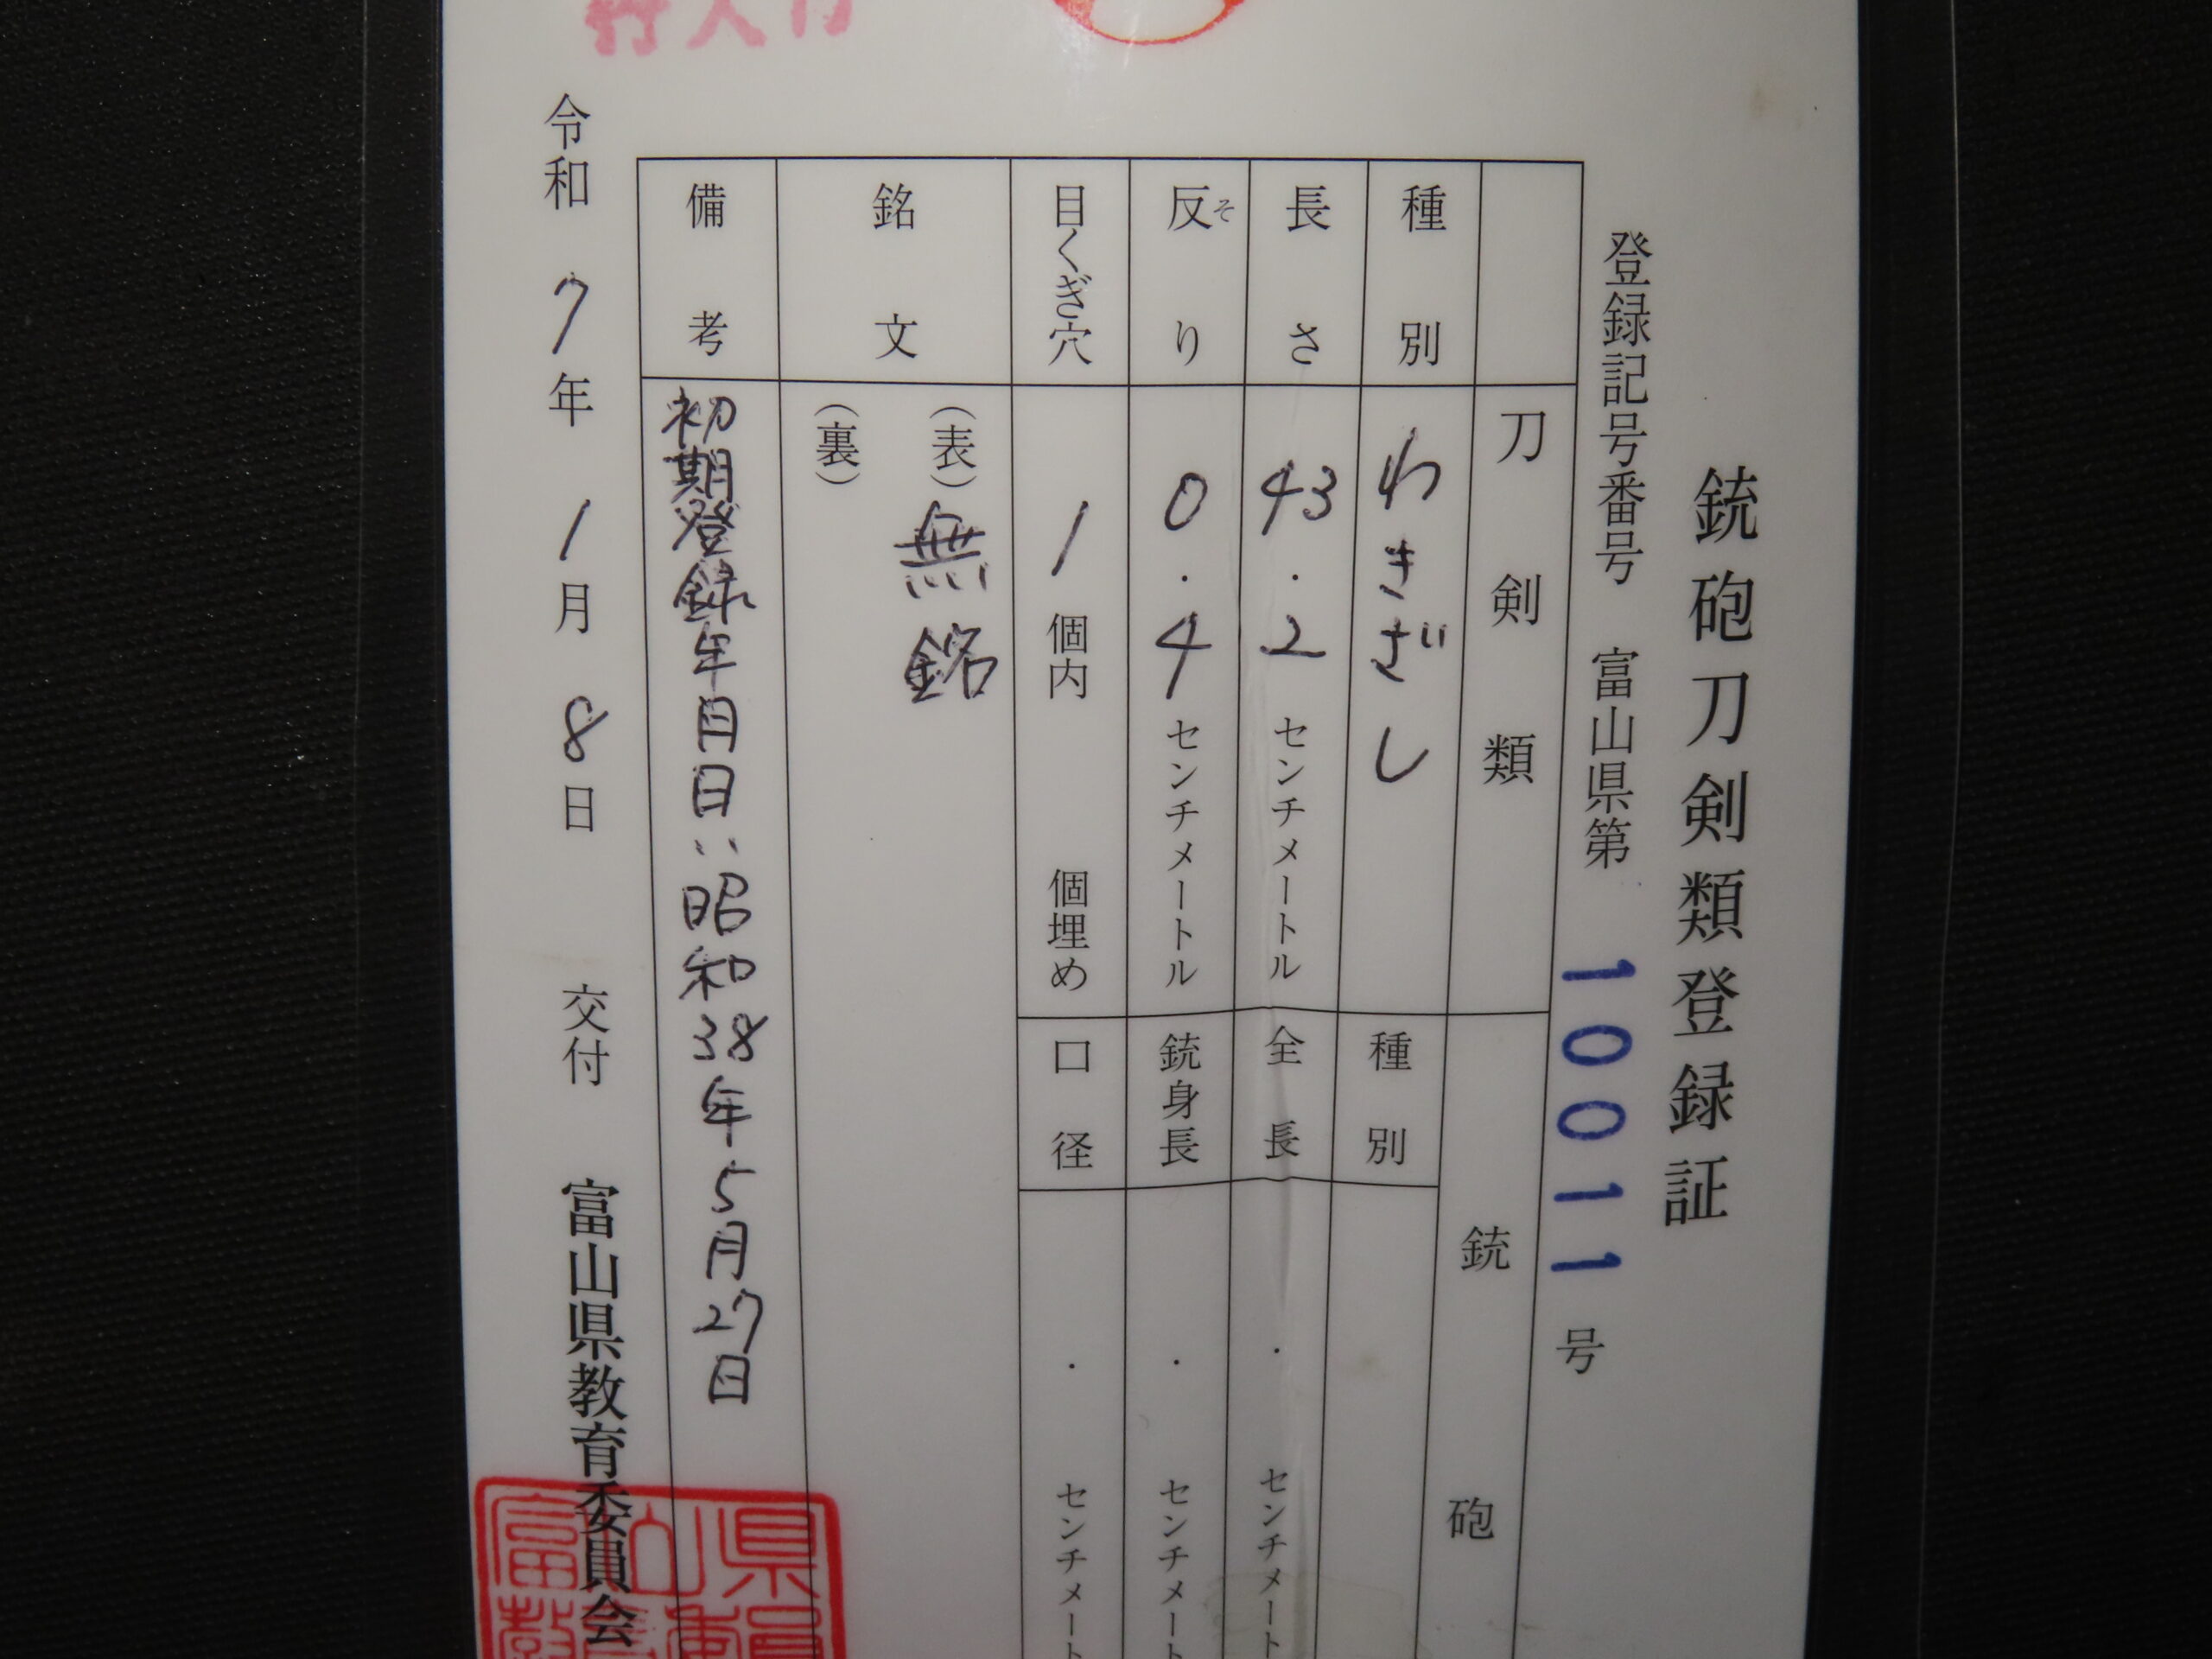 銃砲刀剣類登録証
登録記号番号 富山県第 10011 号
刀剣類
銃砲
種別 わきざし
種別
長さ 43.2 センチメートル
全長 . センチメート
反り 0.4 センチメートル
そ
銃身長 . センチメート
目くぎ穴 1 個内 個埋め
口径 . センチメート
銘文 (表) 無銘
(裏)
備考 初期登録年月日:昭和38年5月27日
令和 7年 1月 8日 交付 富山県教育委員会